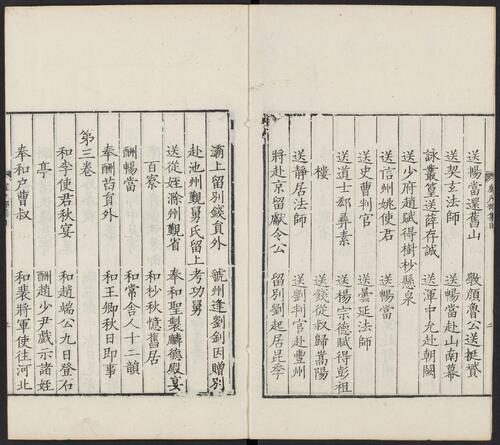 送暢當還舊山　敬顏魯公送挺贇
送契玄法師　送暢當赴山南幕
詠叢篁送薛存誠　送渾中允赴朝闕
送少府趙賦得樹杪懸泉
送信州姚使君　送暢當
送史曹判官　送曇延法師
送道士郄彞素　送楊宗德賦得彭祖
樓　送錢從叔歸嵩陽
送靜居法師　送劉判官赴豐州
將赴京留獻令公　留別劉起居昆季
灞上留別錢員外　虢州逢劉釗因贈別
赴池州覲舅氏留上考功舅
送從姪滁州覲省　奉和聖製麟德殿宴
百寮　和杪秋憶舊居
酬暢當　和常舍人十二韻
奉酬苗員外　和王卿秋日即事
第三卷
和李使君秋宴　和趙端公九日登石
亭　酬趙少尹戲示諸姪
奉和户曹叔　和裴將軍使往河北